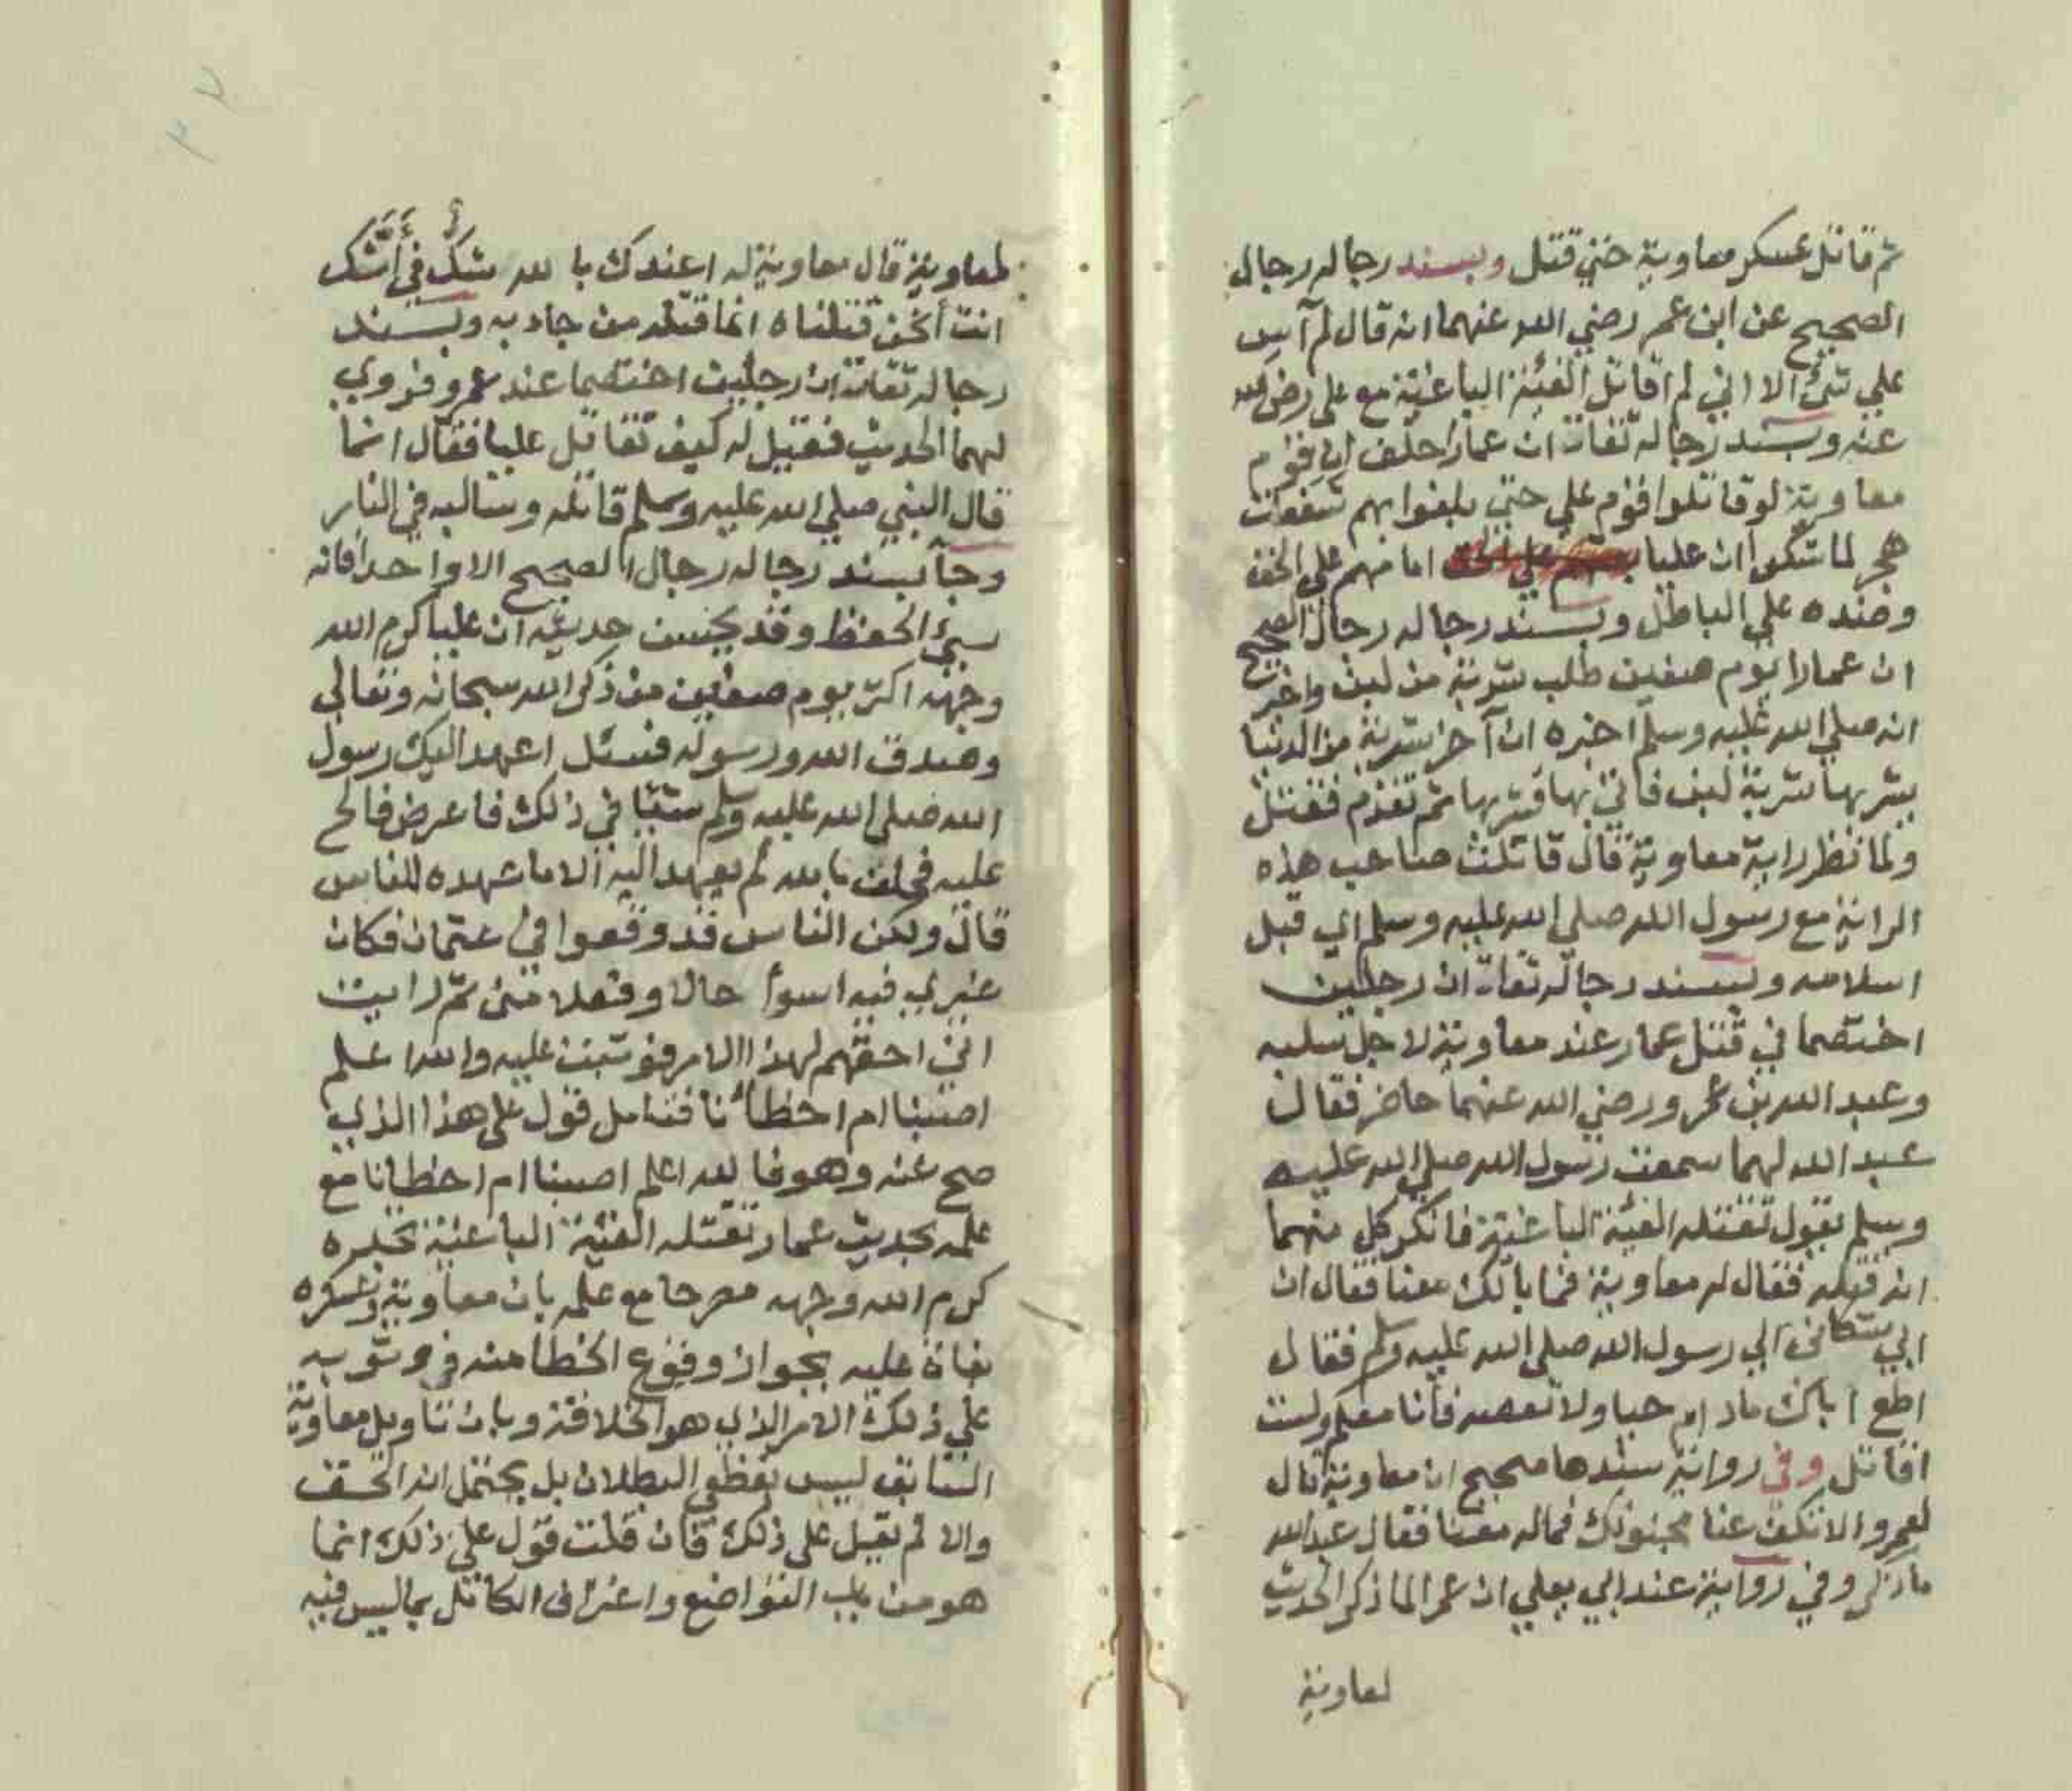 ثم قاتل عسكر معاوية حتي قتل وبسند رجاله رجال
الصحيح عن ابن عمر رضي الله عنهما انه قال لم آيس
علي شئ الا اني لم اقاتل الفئة الباغية مع علي رضي الله
عنه وبسند رجاله ثقات ان عمارا حلف ان قوم
معاوية لو قاتلوا قوم علي حتي بلغوا بهم شعفات
هجر لما شكوا ان عليا امامهم علي الحق
وضده علي الباطل وبسند رجاله رجال الصحيح
ان عمارا يوم صفين طلب شربة من لبن واخبر
انه صلي الله عليه وسلم اخبره ان آخر شربة من الدنيا
يشربها شربة لبن فاتي بها فشربها ثم تقدم فقتل
ولما نظر راية معاوية قال قاتلت صاحب هذه
الراية مع رسول الله صلي الله عليه وسلم اي قبل
اسلامه وبسند رجاله ثقات ان رجلين
اختصما في قتل عمار عند معاوية لاجل سلبه
وعبد الله بن عمرو رضي الله عنهما حاضر فقال
عبد الله لهما سمعت رسول الله صلي الله عليه
وسلم يقول تقتله الفئة الباغية فانكر كل منهما
انه قتله فقال له معاوية فما بالك معنا فقال ان
ابي شكاني الي رسول الله صلي الله عليه وسلم فقال
اطع اباك مادام حيا ولا تعصه فانا معكم ولست
اقاتل وفي رواية سندها صحيح ان معاوية قال
لعمرو الا تكف عنا مجنونك فماله معنا فقال عبد الله
ما ذكر وفي رواية عند ابي يعلي ان عمر الما ذكر الحديث
لمعاوية
لمعاوية قال معاوية له اعندك بالله شك في أشك
انت أنحن قتلناه انما قتله من جاء به وبسند
رجاله ثقات ان رجلين اختصما عند عمرو فروي
لهما الحديث فقيل له كيف تقاتل عليا فقال انما
قال النبي صلي الله عليه وسلم قاتله وسالبه في النار
وجآ بسند رجاله رجال الصحيح الا واحدا فانه
سيئ الحفظ وقد يحسن حديثه ان عليا كرم الله
وجهه اكثر يوم صفين من ذكر الله سبحانه وتعالي
وصدق الله ورسوله فسئل اعهد اليك رسول
الله صلي الله عليه وسلم شيئا في ذلك فاعرض فالح
عليه فحلف بالله لم يعهد اليه الا ما شهده للناس
قال ولكن الناس قد وقعوا في عثمان فكان
غيري فيه اسوأ حالا وفعلا مني ثم رايت
اني احقهم لهذا الامر فوثبت عليه والله اعلم
اصبنا ام اخطأنا فتامل قول علي هذا الذي
صح عنه وهو فالله اعلم اصبنا ام اخطانا مع
علمه بحديث عمار تقتله الفئة الباغية تجده
كرم الله وجهه مصرحا مع علمه بان معاوية وعسكره
بغاة عليه بجواز وقوع الخطا منه في وثوبه
علي ذلك الامر الذي هو الخلافة وبان تاويل معاوية
السابق ليس بقطعي البطلان بل يحتمل انه الحق
والا لم يقبل علي ذلك فان قلت قول علي ذلك انما
هو من باب التواضع واعتراف الكامل بما ليس فيه